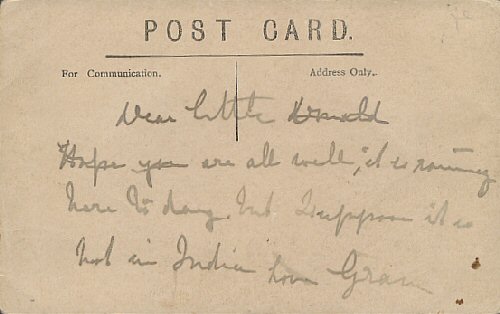 POST CARD.
For Communication. Address Only.
Dear little Donald
Hope you are all well, it is raining
here to day, but I suppose it is
not in India love Gran